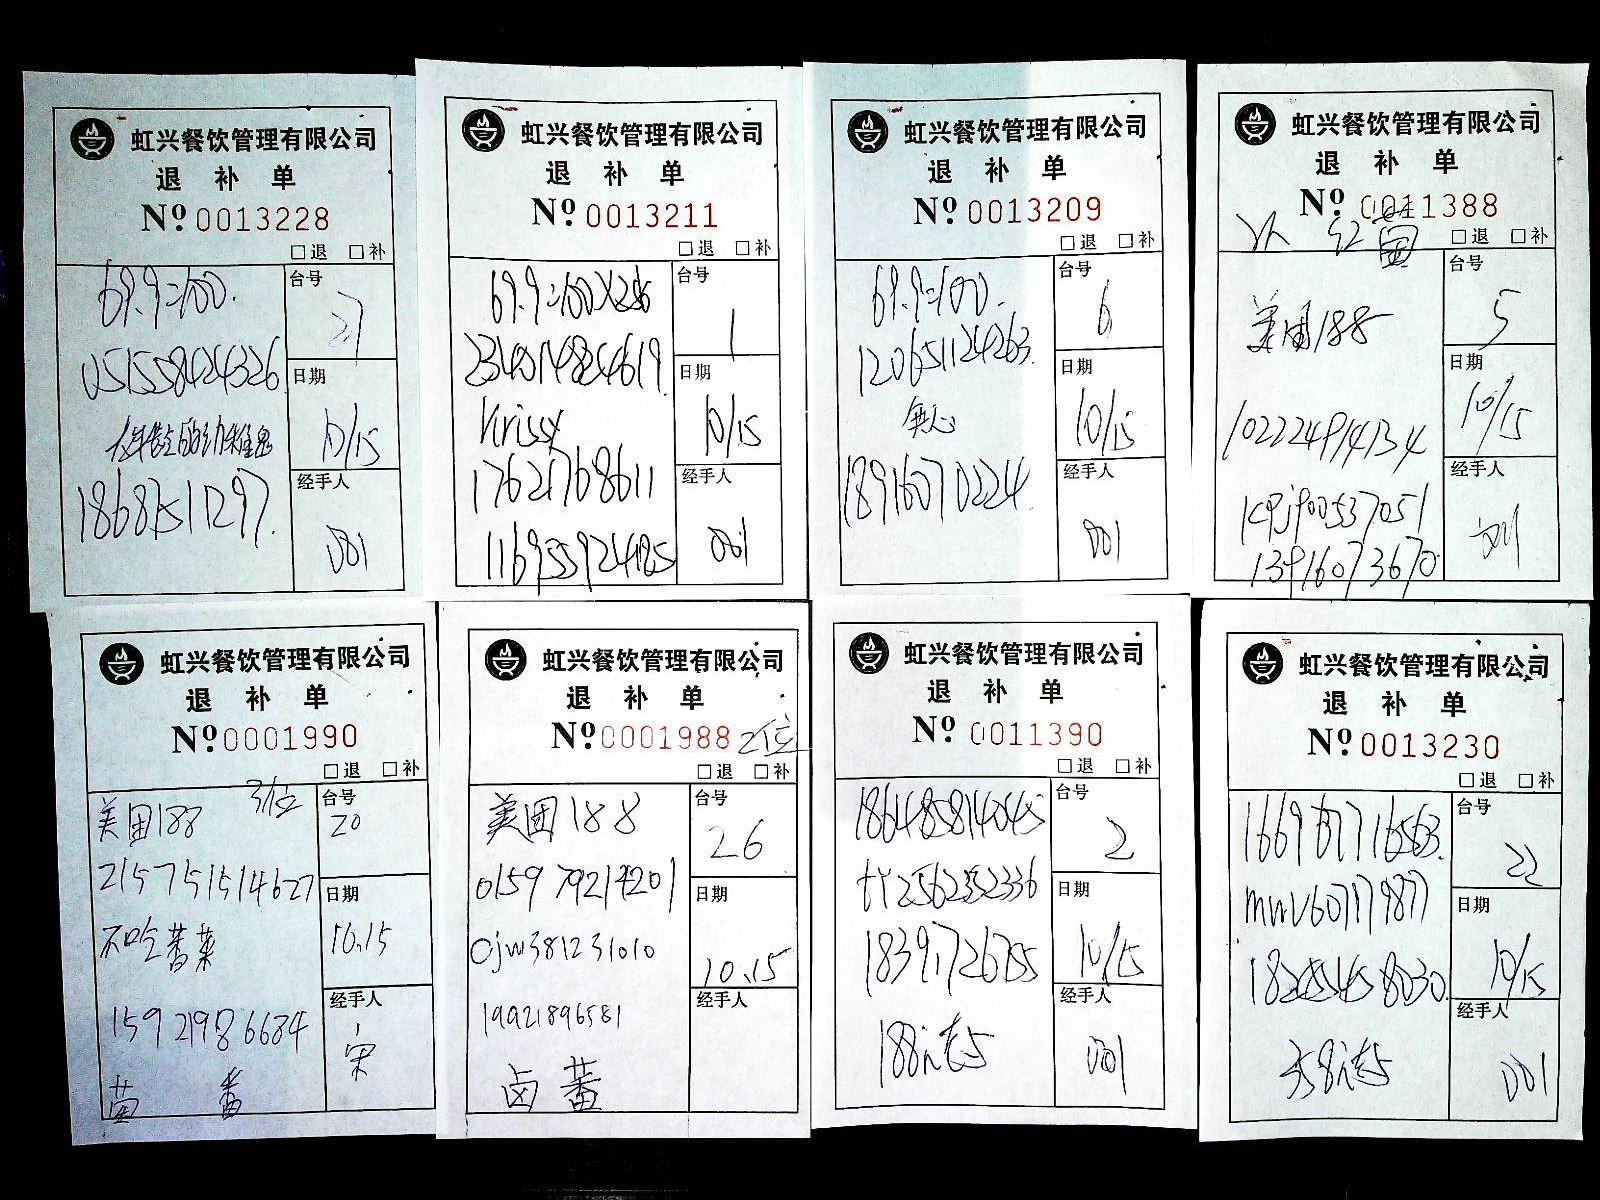 虹兴餐饮管理有限公司
退 补 单
Nº 0013228
□退 □补
69.9=100.
台号
27
051558424326
日期
10/15
18687511297.
经手人
001
虹兴餐饮管理有限公司
退 补 单
Nº 0013211
□退 □补
69.9=100X2
台号
1
2340148254619
日期
10/15
Krissy
17621768611
经手人
001
116955924185
虹兴餐饮管理有限公司
退 补 单
Nº 0013209
□退 □补
69.9=100.
台号
6
120651124263.
日期
10/15
无心
18916070224.
经手人
001
虹兴餐饮管理有限公司
退 补 单
Nº 0011388
□退 □补
美团188
台号
5
日期
10/15
102224914134
kqj900537051
经手人
001
13916073670
虹兴餐饮管理有限公司
退 补 单
Nº 0001990
□退 □补
美团188 3位
台号
20
215751514627
日期
10.15
不吃香菜
15921986684
经手人
宋
番
虹兴餐饮管理有限公司
退 补 单
Nº 0001988 2位
□退 □补
美团188
台号
26
015979214201
日期
10.15
Cjw381231010
经手人
19921896581
卤 蕃
虹兴餐饮管理有限公司
退 补 单
Nº 0011390
□退 □补
186485814045
台号
2
tY256252336
日期
10/15
18391726755
经手人
001
虹兴餐饮管理有限公司
退 补 单
Nº 0013230
□退 □补
台号
22
mwv607179877
日期
10/15
18255458030.
经手人
001